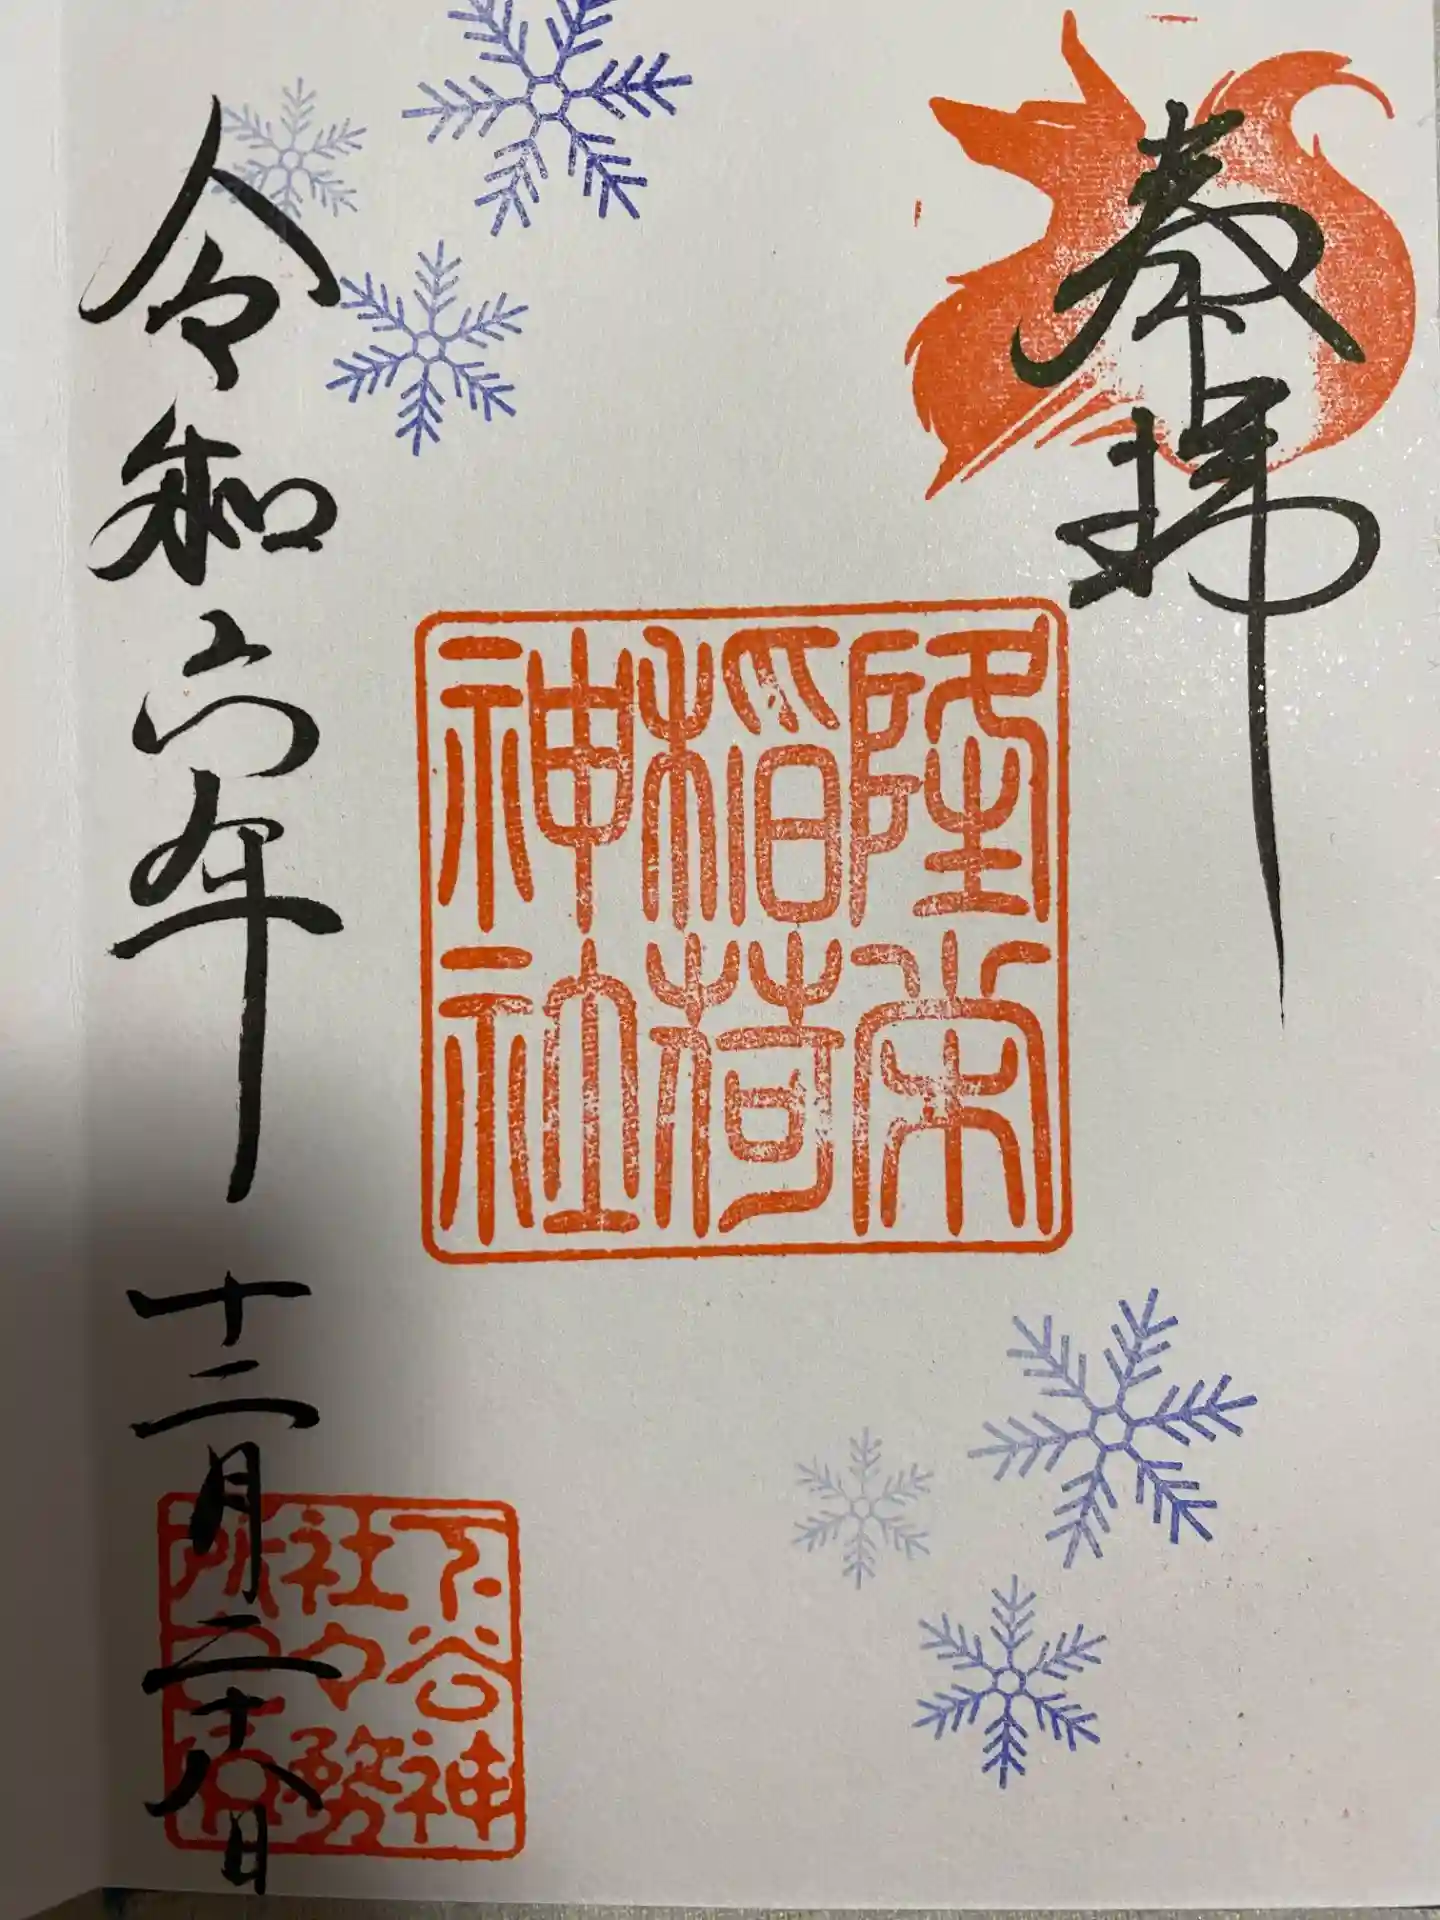 奉拝
隆栄
稲荷
神社
令和六年十二月二十八日
下谷神
社々務
所